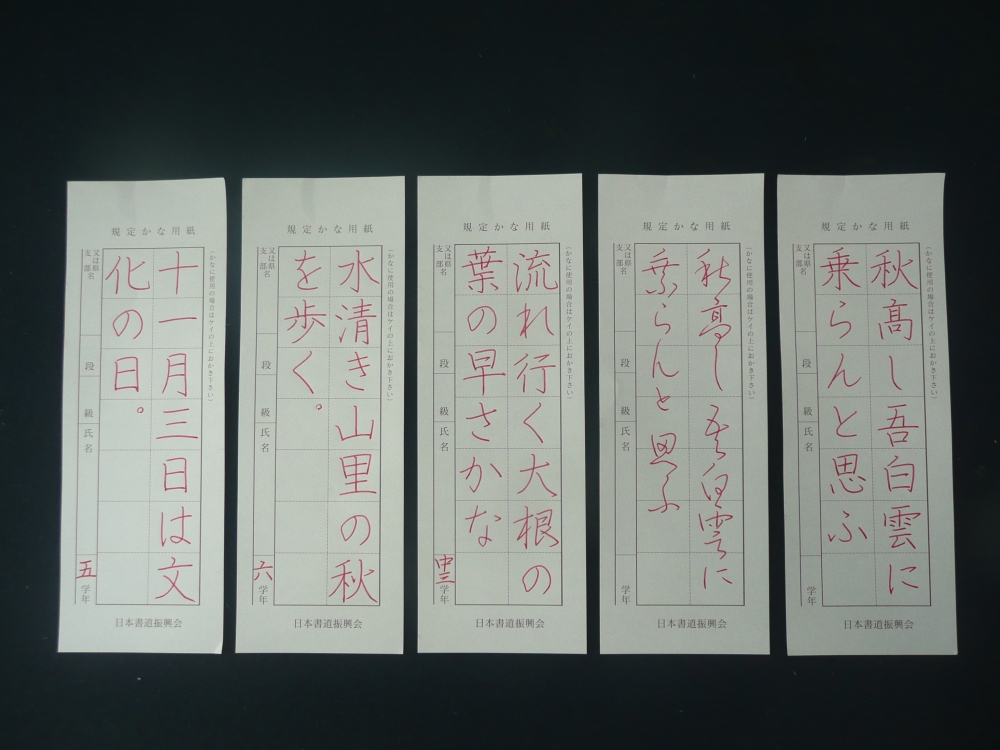 規定かな用紙
(かなに使用の場合はケイの上におかき下さい)
秋髙し吾白雲に
乗らんと思ふ
又は県名
支部
段
級
氏名
学年
日本書道振興会
規定かな用紙
(かなに使用の場合はケイの上におかき下さい)
秋髙し 吾白雲に
乗らんと思ふ
又は県名
支部
段
級
氏名
学年
日本書道振興会
規定かな用紙
(かなに使用の場合はケイの上におかき下さい)
流れ行く大根の
葉の早さかな
又は県名
支部
段
級
氏名
中三
学年
日本書道振興会
規定かな用紙
(かなに使用の場合はケイの上におかき下さい)
水清き山里の秋
を歩く。
又は県名
支部
段
級
氏名
六学年
日本書道振興会
規定かな用紙
(かなに使用の場合はケイの上におかき下さい)
十一月三日は文
化の日。
又は県名
支部
段
級
氏名
五学年
日本書道振興会